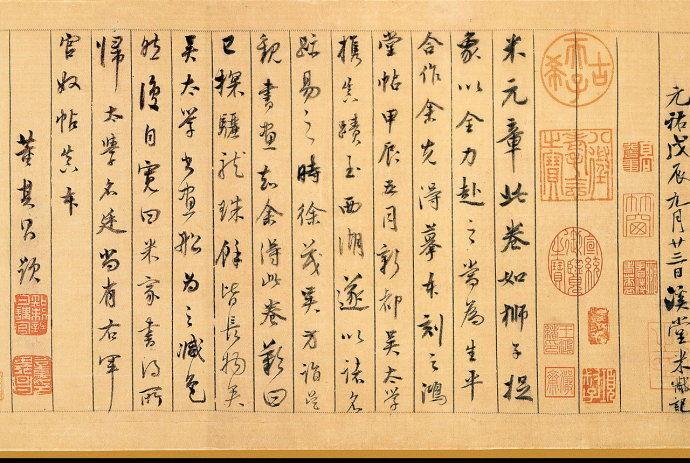 元祐戊辰九月廿三日溪堂米黻記
古希天子
宣統御覽之寶
竹窗
米元章此卷如獅子捉
象以全力赴之當為生平
合作余先得摹本刻之鴻
堂帖甲辰五月新都吳太學
攜真蹟至西湖遂以諸名
跡易之時徐茂吳方詣吳
觀書畫知余得此卷歎曰
已探驪龍珠餘皆長物矣
吳太學書畫船為之減色
然後自寬曰米家書得所
歸太學名廷尚有右軍
官奴帖真本
董其昌題